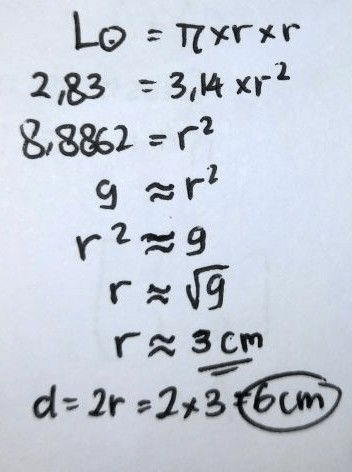 L○ = π × r × r
2,83 = 3,14 × r²
8,8862 = r²
9 ≈ r²
r² ≈ 9
r ≈ √9
r ≈ 3 cm
d = 2r = 2 × 3 = 6 cm